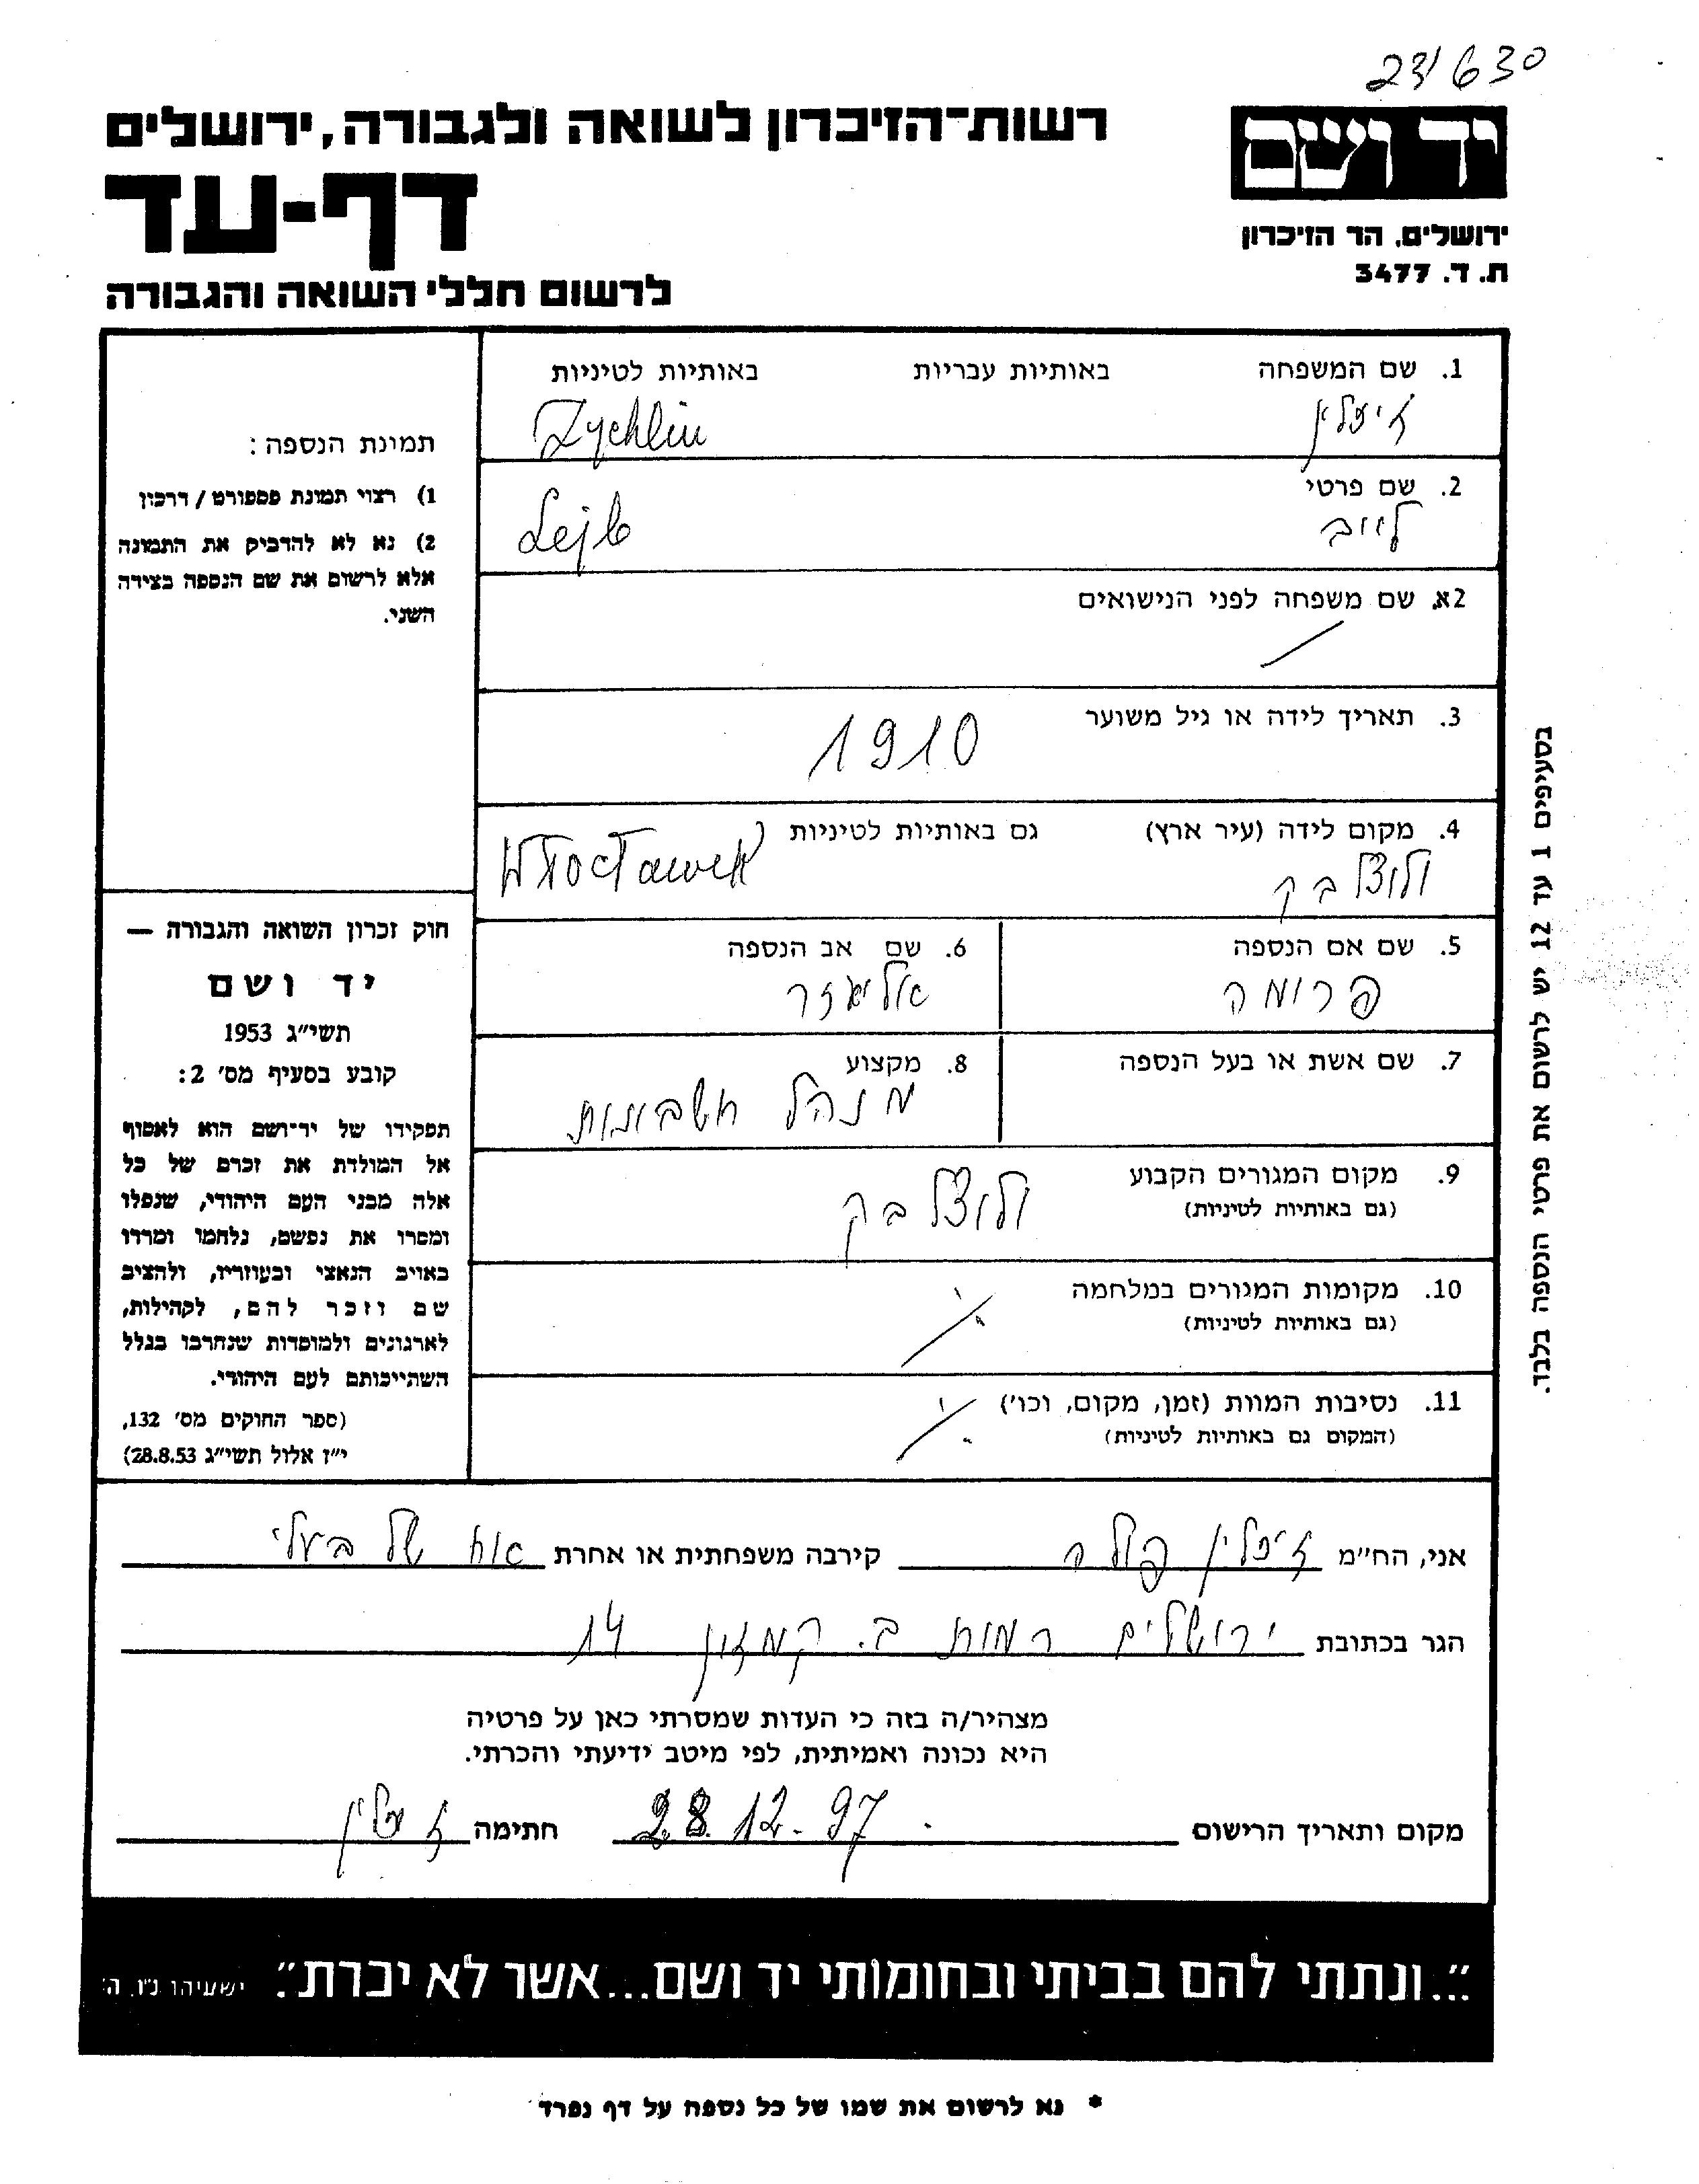 231630
רשות־הזיכרון לשואה ולגבורה, ירושלים
דף-עד
לרשום חללי השואה והגבורה
יד ושם
ירושלים, הר הזיכרון
ת. ד. 3477
1. שם המשפחה באותיות עבריות באותיות לטיניות
Zychlin
2. שם פרטי
לייב Lejb
2א. שם משפחה לפני הנישואים
3. תאריך לידה או גיל משוער
1910
4. מקום לידה (עיר ארץ) גם באותיות לטיניות
ולוצלבק Włocławek
5. שם אם הנספה 6. שם אב הנספה
פרומה אליעזר
7. שם אשת או בעל הנספה 8. מקצוע
מנהל חשבונות
9. מקום המגורים הקבוע
(גם באותיות לטיניות)
ולוצלבק
10. מקומות המגורים במלחמה
(גם באותיות לטיניות)
11. נסיבות המוות (זמן, מקום, וכו')
(המקום גם באותיות לטיניות)
תמונת הנספה:
1) רצוי תמונת פספורט / דרכון
2) נא לא להדביק את התמונה
אלא לרשום את שם הנספה בצידה
השני.
חוק זכרון השואה והגבורה —
יד ושם
תשי״ג 1953
קובע בסעיף מס' 2:
תפקידו של יד־ושם הוא לאסוף
אל המולדת את זכרם של כל
אלה מבני העם היהודי, שנפלו
ומסרו את נפשם, נלחמו ומרדו
באויב הנאצי ובעוזריו, ולהציב
שם וזכר להם, לקהילות,
לארגונים ולמוסדות שנחרבו בגלל
השתייכותם לעם היהודי.
(ספר החוקים מס' 132,
י״ז אלול תשי״ג 28.8.53)
בסעיפים 1 עד 12 יש לרשום את פרטי הנספה בלבד.
אני, החי״מ זיכלין פולה קירבה משפחתית או אחרת אח של בעלי
הגר בכתובת ירושלים רמות ב. קמזון 14
מצהיר/ה בזה כי העדות שמסרתי כאן על פרטיה
היא נכונה ואמיתית, לפי מיטב ידיעתי והכרתי.
מקום ותאריך הרישום 28.12.97 חתימה
״...ונתתי להם בביתי ובחומותי יד ושם...אשר לא יכרת״. ישעיהו נ״ו, ה'
* נא לרשום את שמו של כל נספה על דף נפרד